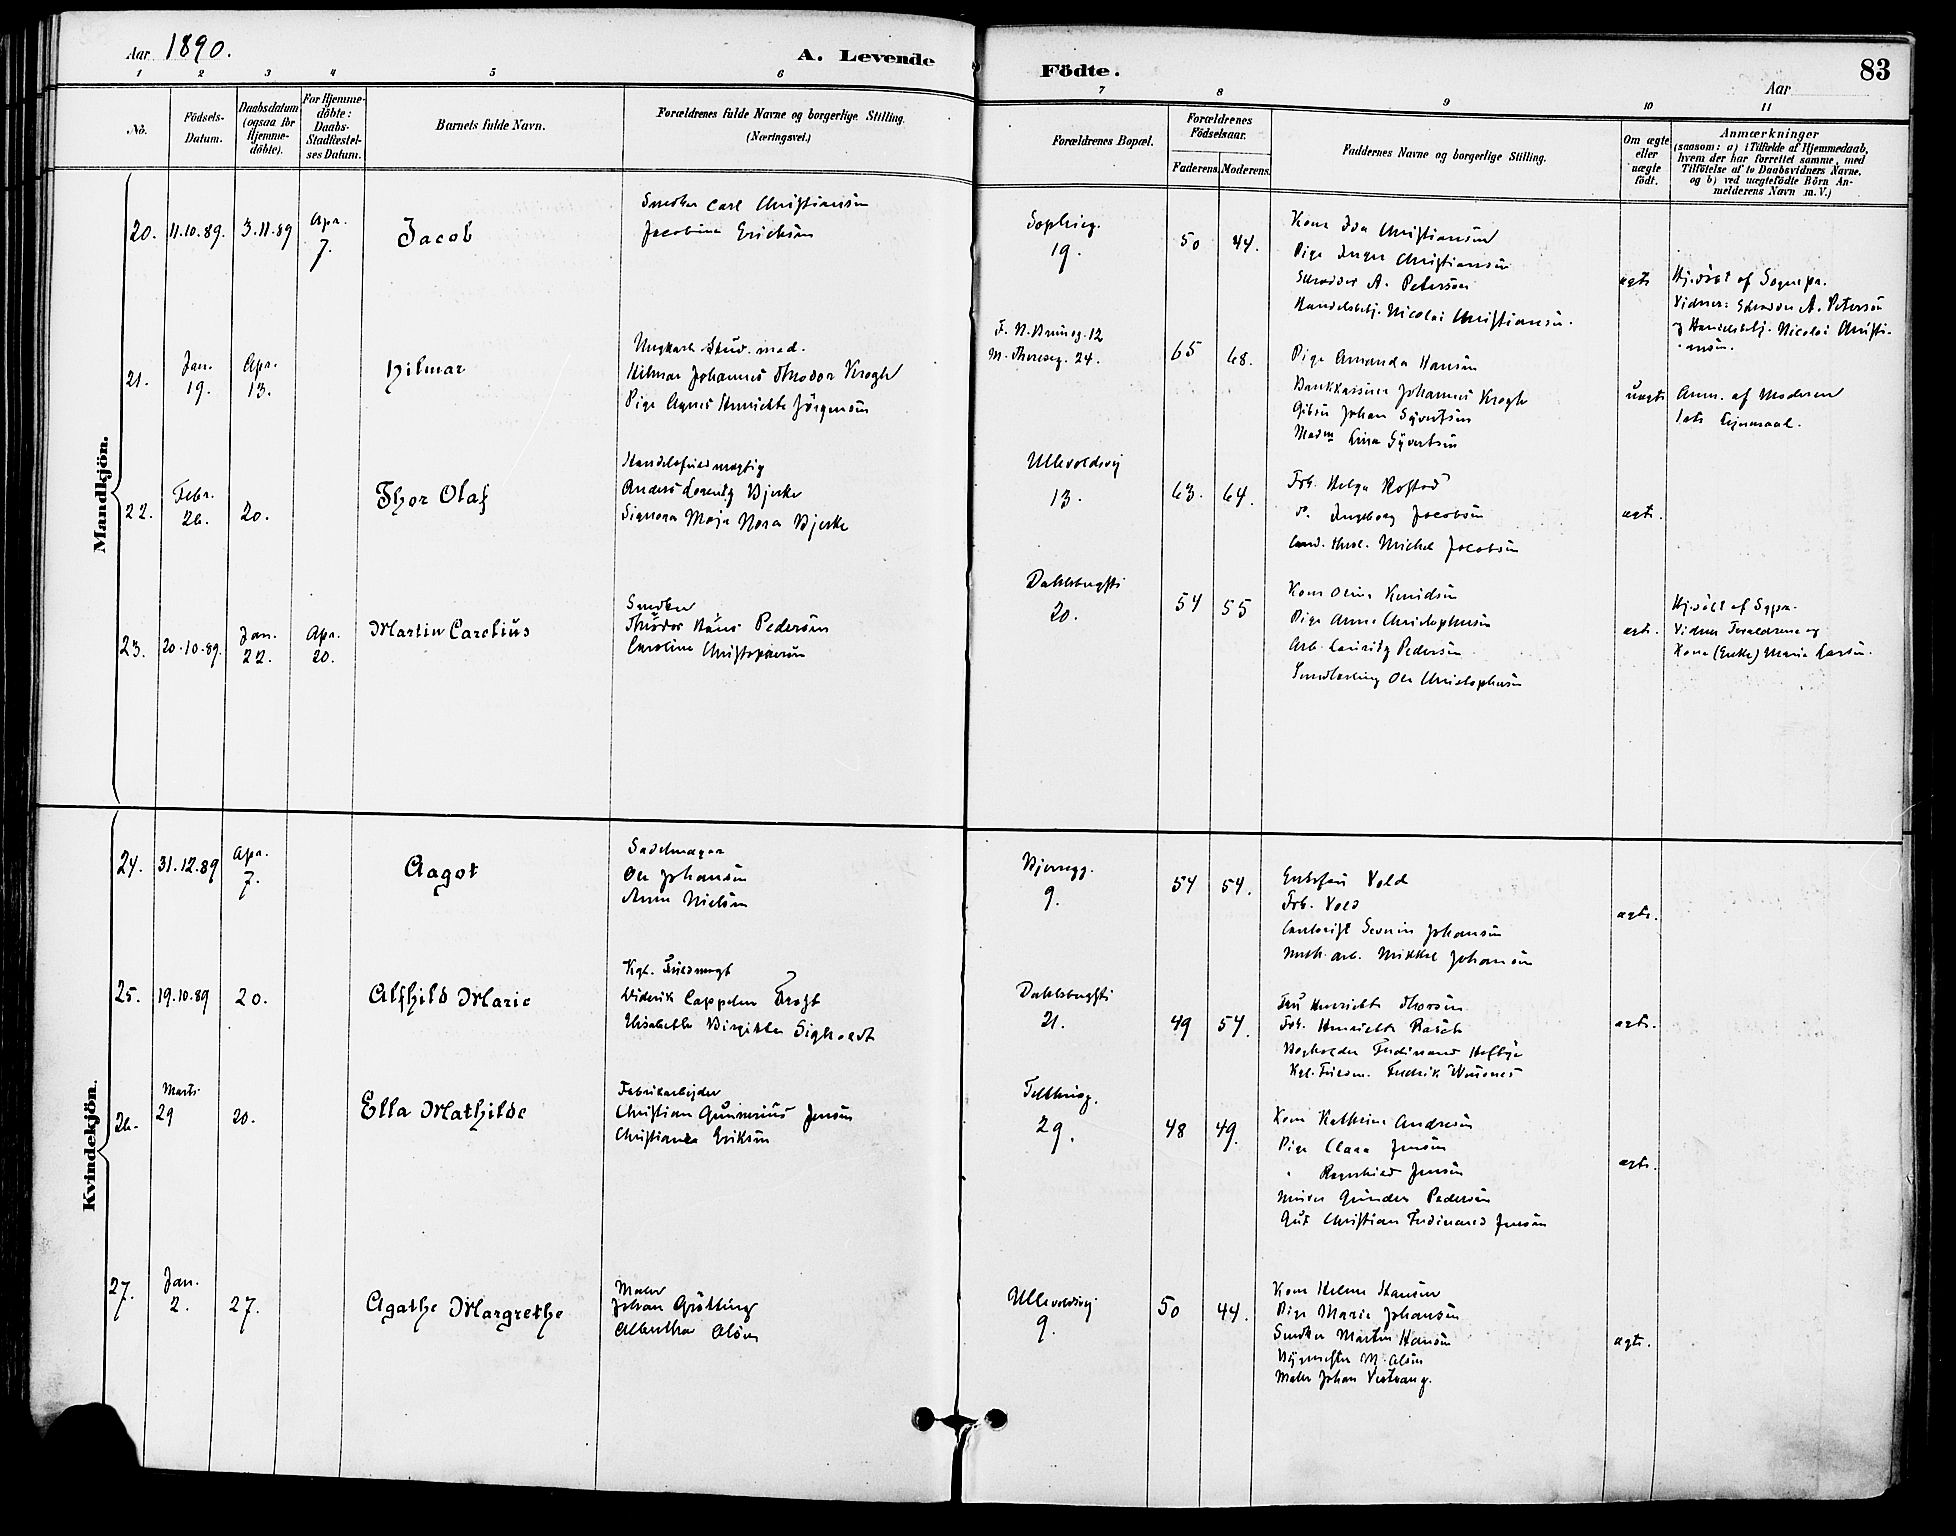 Aar 1890.
A. Levende Födte.
Aar
83
1 2 3 4 5 6 7 8 9 10 11
No.
Födsels-
Datum.
Daabsdatum
(ogsaa for
Hjemme-
döbte).
For Hjemme-
döbte:
Daabs-
Stadfæstel-
ses Datum.
Barnets fulde Navn.
Forældrenes fulde Navne og borgerlige Stilling.
(Næringsvei.)
Forældrenes Bopæl.
Forældrenes
Födselsaar.
Faderens. Moderens.
Faddernes Navne og borgerlige Stilling.
Om ægte
eller
uægte
födt.
Anmærkninger
(saasom: a) i Tilfælde af Hjemmedaab,
hvem der har forrettet samme, med
Tilföielse af to Daabsvidners Navne,
og b) ved uægtefödte Börn An-
melderens Navn m. V.)
Mandkjön.
20.
11.10.89.
3.11.89
Apr.
7.
Jacob
Smedker Carl Christiansen
Jacobine Ericksen
Sophieg.
19.
50
44.
Kone Ida Christiansen
Pige Inger Christiansen
Skrædder A. Petersen
Handelsbetj. Nicolai Christiansen.
ægte
Hj.döbt af Sognepr.
Vidner: Skrædder A. Petersen
og Handelsbetj. Nicolai Christi-
ansen.
21.
Jan.
19.
Apr.
13.
Hilmar
Ungkarl Stud. med.
Hilmar Johannes Thodor Krogh
Pige Agnes Henriette Jörgensen
F. N. Bruung. 12
M. Thereseg. 24.
65
68.
Pige Amanda Hansen
Bankkasserer Johannes Krogh
Johan Syvertsen
Madm Lina Syvertsen
uægte
Anm. af Moderen
1ste Leiermaal.
22.
Febr.
26.
20.
Thor Olaf
Handelsfuldmægtig
Anders Lorentz Bjerke
Signora Maja Nora Bjerke
Ullevoldsvej
13.
63.
64.
Frk. Helga Rostad
Ingeborg Jacobsen
Michel Jacobsen
ægte.
23.
20.10.89.
Jan.
22.
Apr.
20.
Martin Carelius
Smedker
Thodor Hans Pedersen
Caroline Christophersen
Dahlsbergsti
20.
54
55
Kone Oline Knudsen
Pige Anne Christophersen
Arb. Lauritz Pedersen
Ole Christophersen
ægte.
Hj.döbt af Sgpr.
Vidner Forældrene og
Kone (Enke) Maria Larsen.
Kvindekjön.
24.
31.12.89
Apr.
7.
Aagot
Sadelmager
Ole Johansen
Anne Nielsen
Bjerregg.
9.
54
54.
Enkefru Vold
Frk. Vold
Severin Johansen
Mikkel Johansen
ægte.
25.
19.10.89
20.
Alfhild Marie
Kgl. Fuldmægt
Diderik Cappelen Frost
Elisabeth Birgitte Sigholdt
Dahlsbergsti
21.
49
54.
Fru Henriette Thorsen
Frk. Henriette Rasch
Bogholder Ferdinand Hefbye
ægte.
26.
Marts
29
20.
Ella Mathilde
Fabrikarbejder
Christian Gunnerius Jensen
Christianea Eriksen
Telthusg.
29.
48
49.
Kone Kathrine Andresen
Pige Clara Jensen
" Ragnhild Jensen
Murer Gunder Pedersen
Gut Christian Ferdinand Jensen
ægte.
27.
Jan.
2.
27.
Agathe Margrethe
Maler
Johan Grötting
Albertha Olsen
Ullevoldsvej
9.
50
44.
Kone Helene Hansen
Pige Marie Johansen
Smedker Martin Hansen
M. Olsen
Maler Johan Vestvang.
ægte.